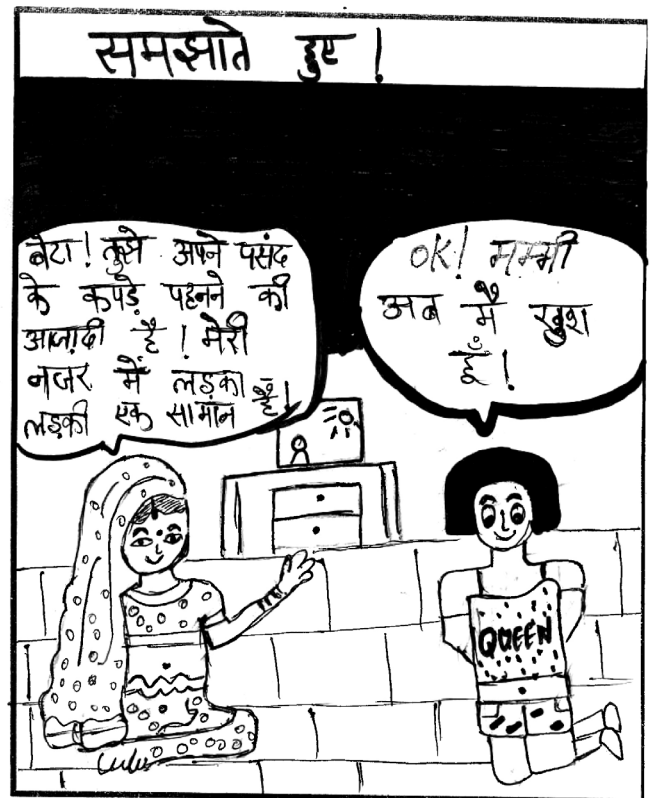 समझाते हुए !
बेटा ! तुझे अपने पसंद
के कपड़े पहनने की
आजादी है ! मेरी
नजर में लड़का
लड़की एक सामान हैं !
OK! मम्मी
अब मैं खुश
हूँ !
QUEEN